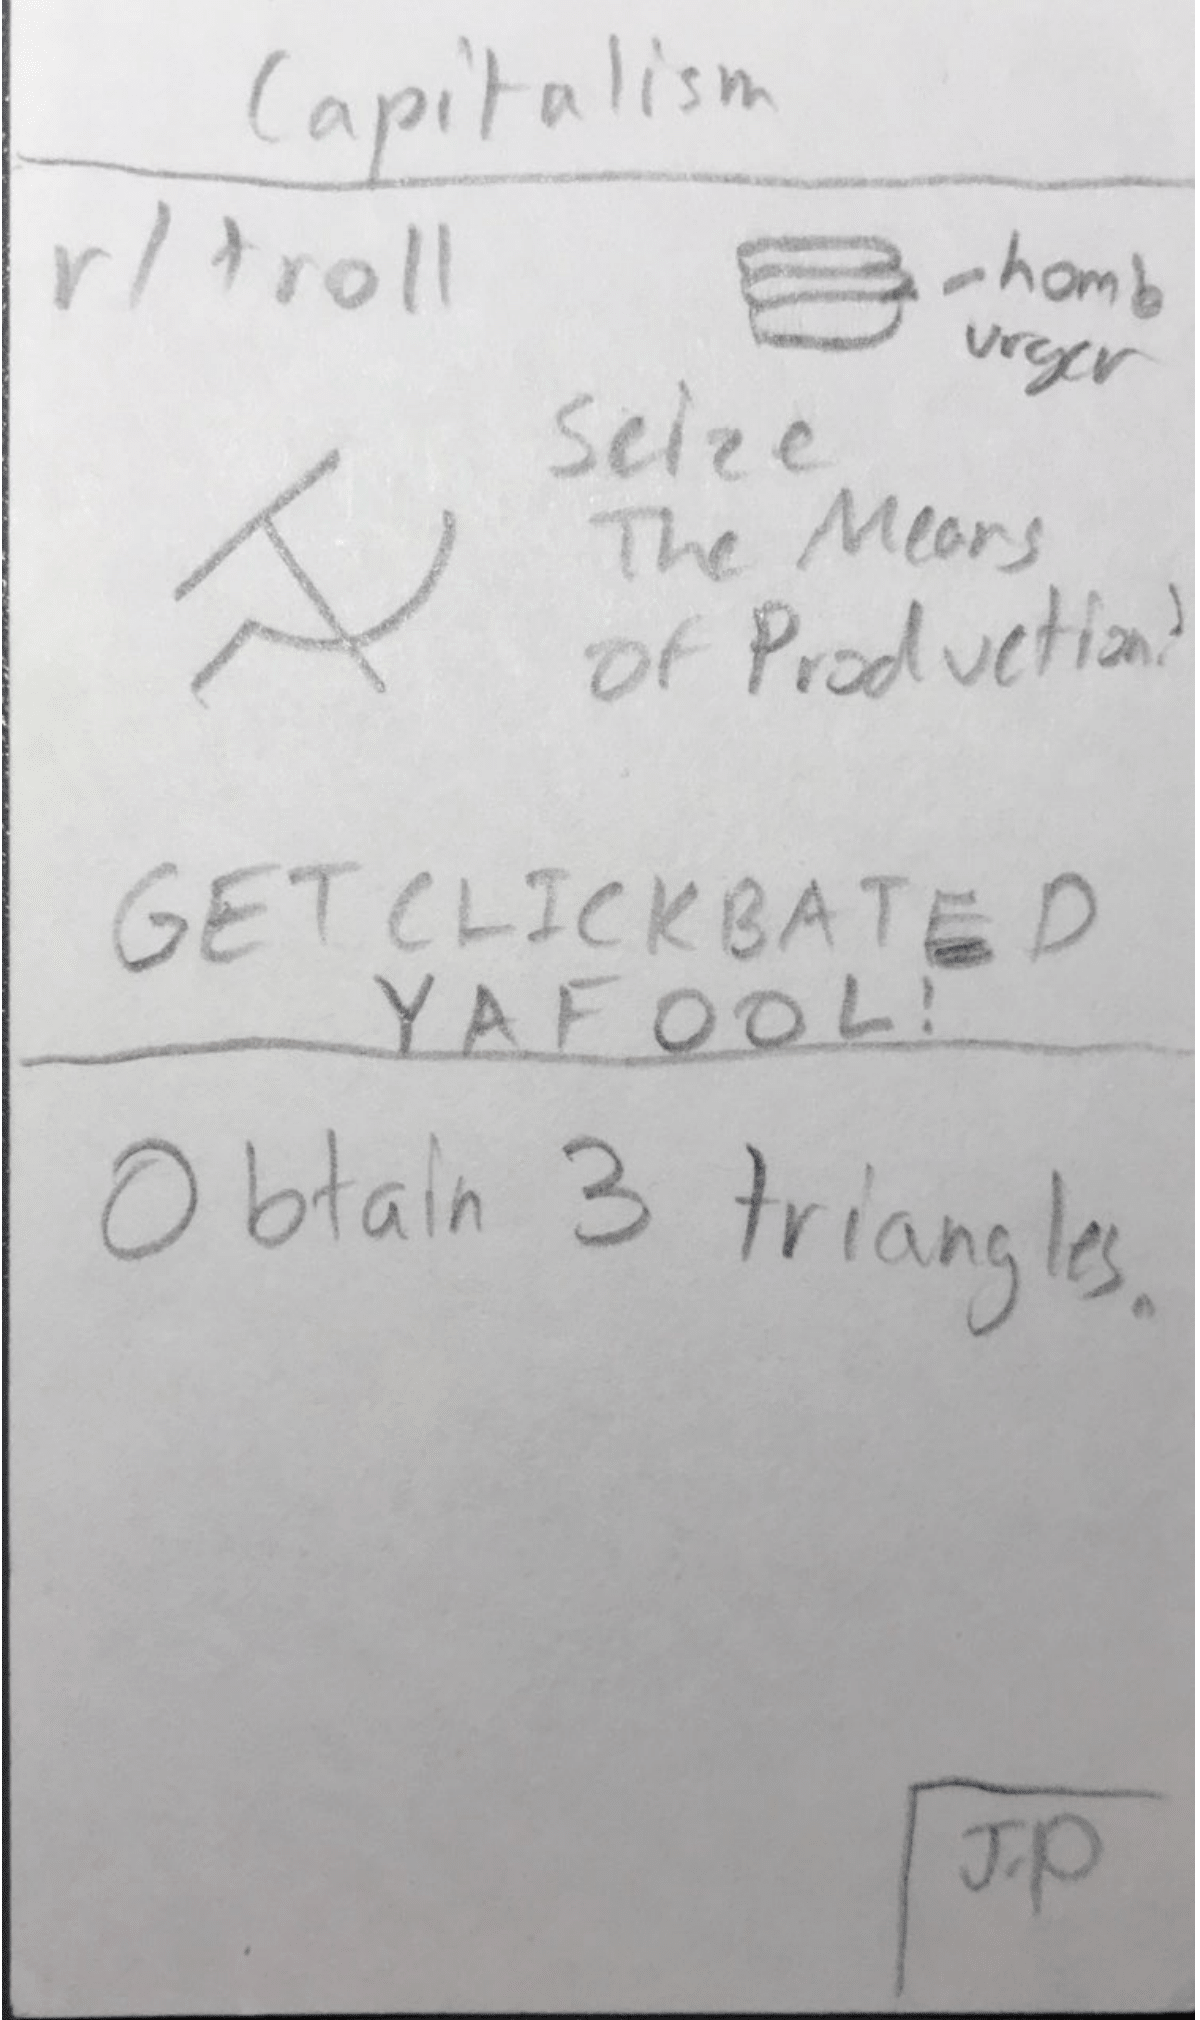 Capitalism
r/troll
-homb
urger
Seize
The Means
of Production!
GET CLICKBATED
YA FOOL!
Obtain 3 triangles.
J.P